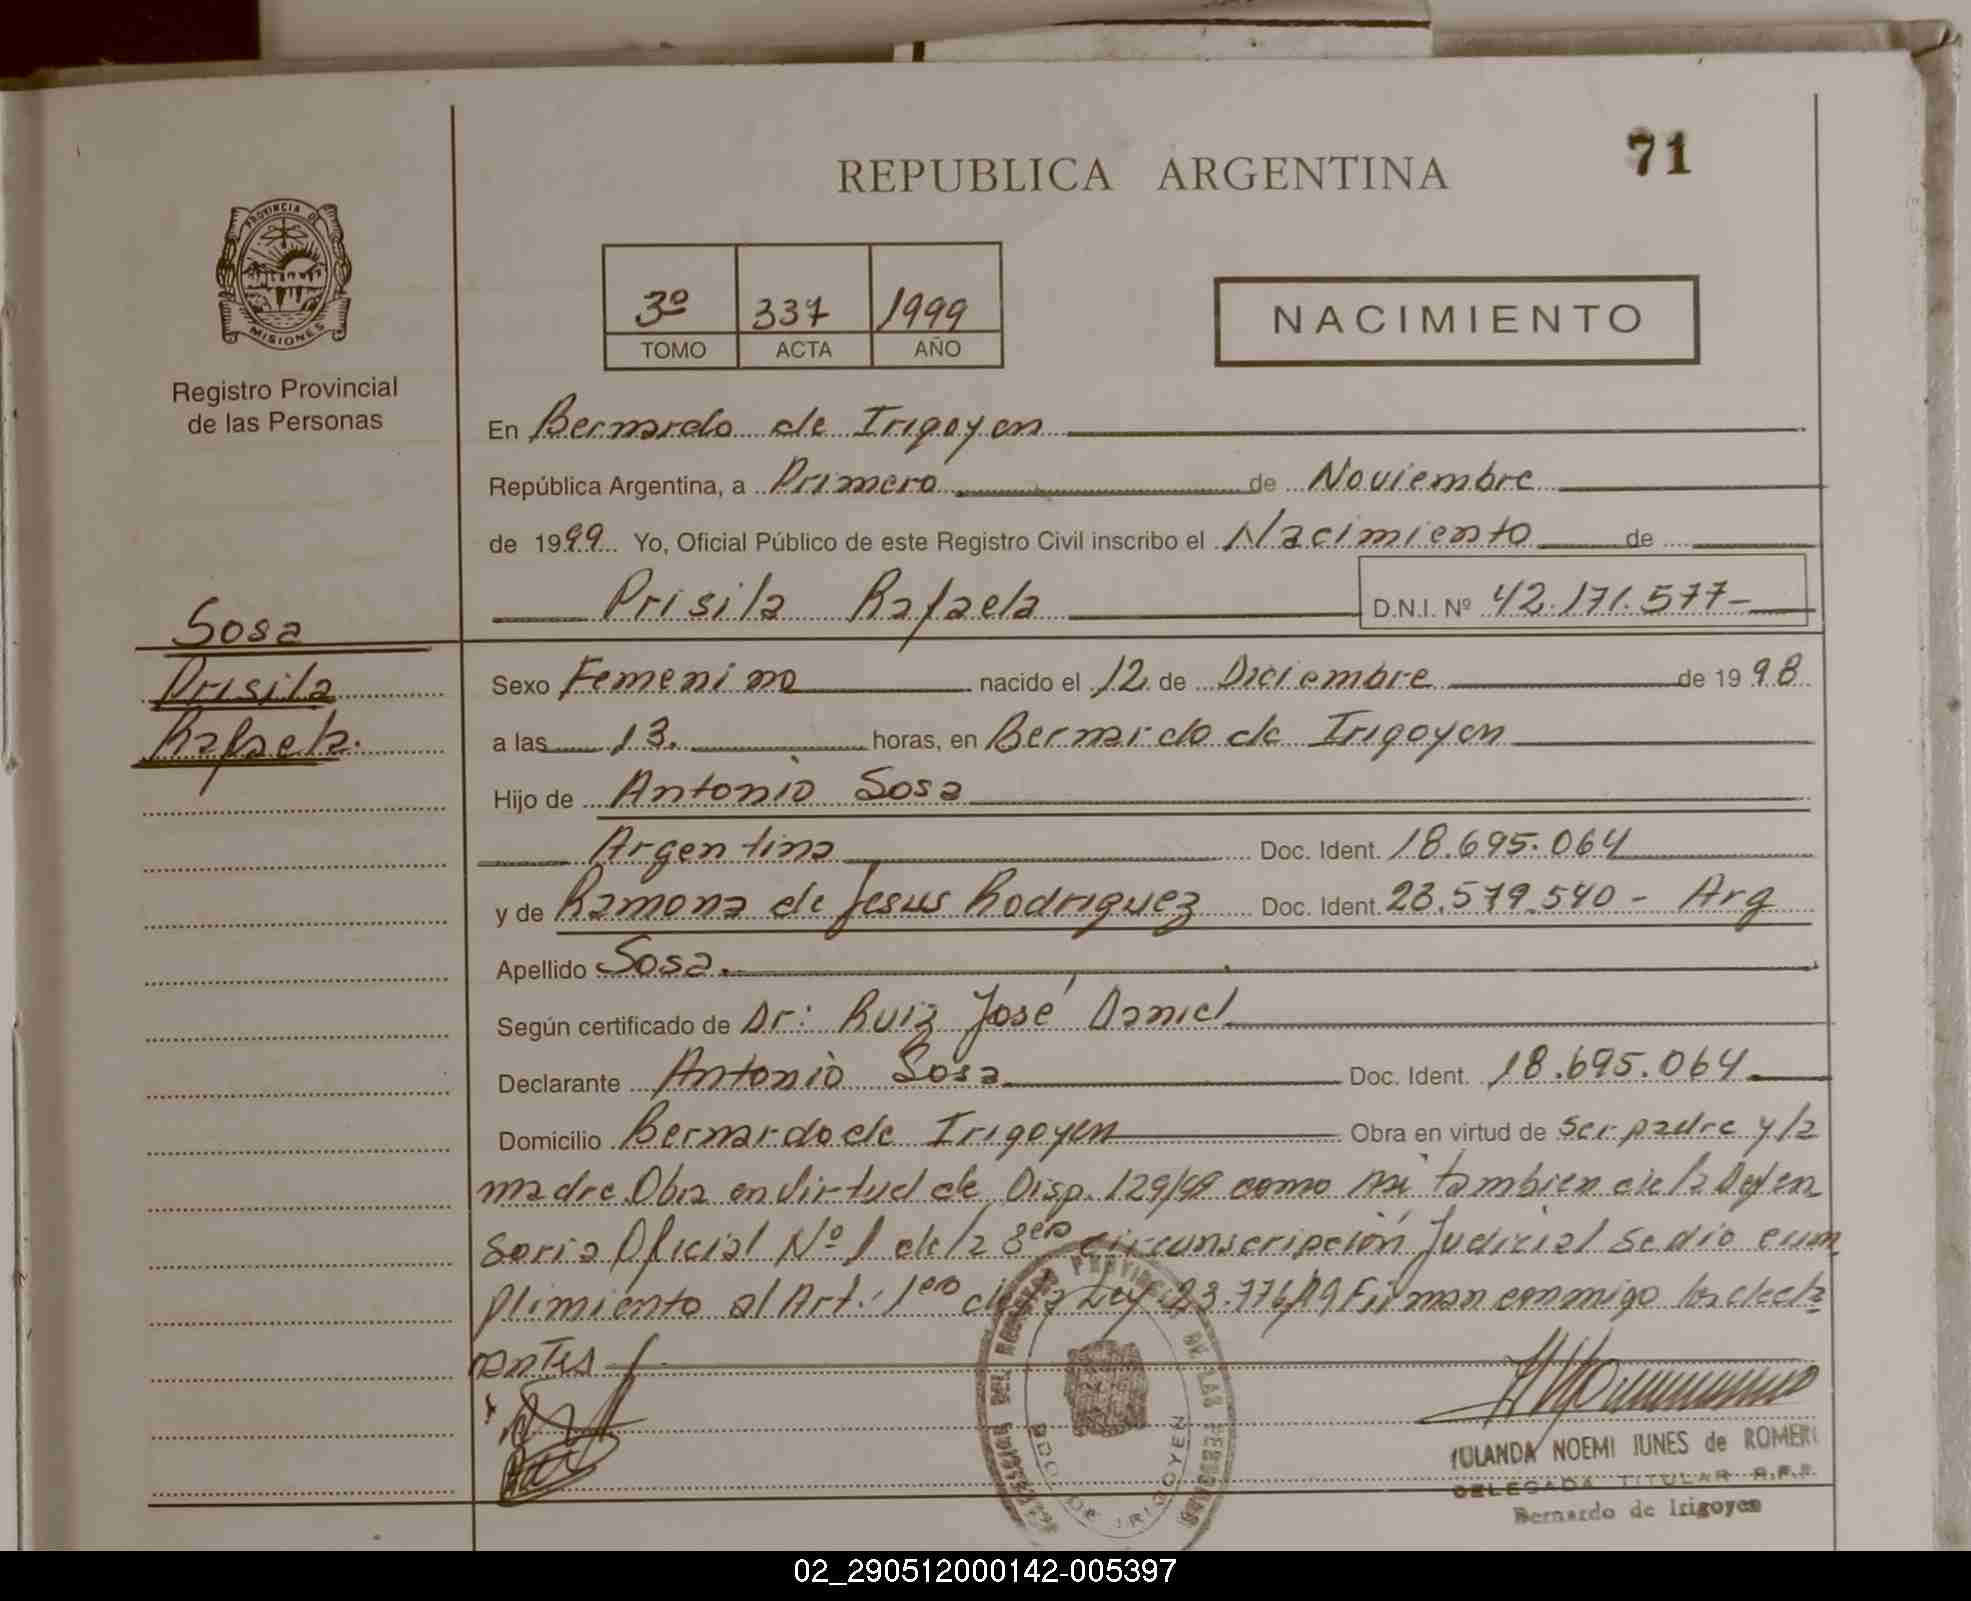 71
REPUBLICA ARGENTINA
PROVINCIA DE
MISIONES
Registro Provincial
de las Personas
3º 337 1999
TOMO ACTA AÑO
NACIMIENTO
En Bernardo de Irigoyen
República Argentina, a Primero de Noviembre
de 1999 Yo, Oficial Público de este Registro Civil inscribo el Nacimiento de
Prisila Rafaela D.N.I. Nº 42.171.577-
Sosa
Prisila
Rafaela.
Sexo Femenino nacido el 12 de Diciembre de 1998
a las 13. horas, en Bernardo de Irigoyen
Hijo de Antonio Sosa
Argentina Doc. Ident. 18.695.064
y de Ramona de Jesus Rodriguez Doc. Ident. 23.579.540 - Arg
Apellido Sosa.
Según certificado de Dr: Ruiz José Daniel
Declarante Antonio Sosa Doc. Ident. 18.695.064
Domicilio Bernardo de Irigoyen Obra en virtud de Ser padre y la
madre Obra en Virtud de Disp. 129/99 como tambien de la Defen
soria Oficial Nº 1 de la circunscripción Judicial se dio cum
plimiento al Art. 1ero de la Ley 23.776/89 Firman conmigo los decla
rantes
BDO DE IRIGOYEN
YOLANDA NOEMI IUNES de ROMERO
DELEGADA TITULAR R.P.P.
Bernardo de Irigoyen
02_290512000142-005397